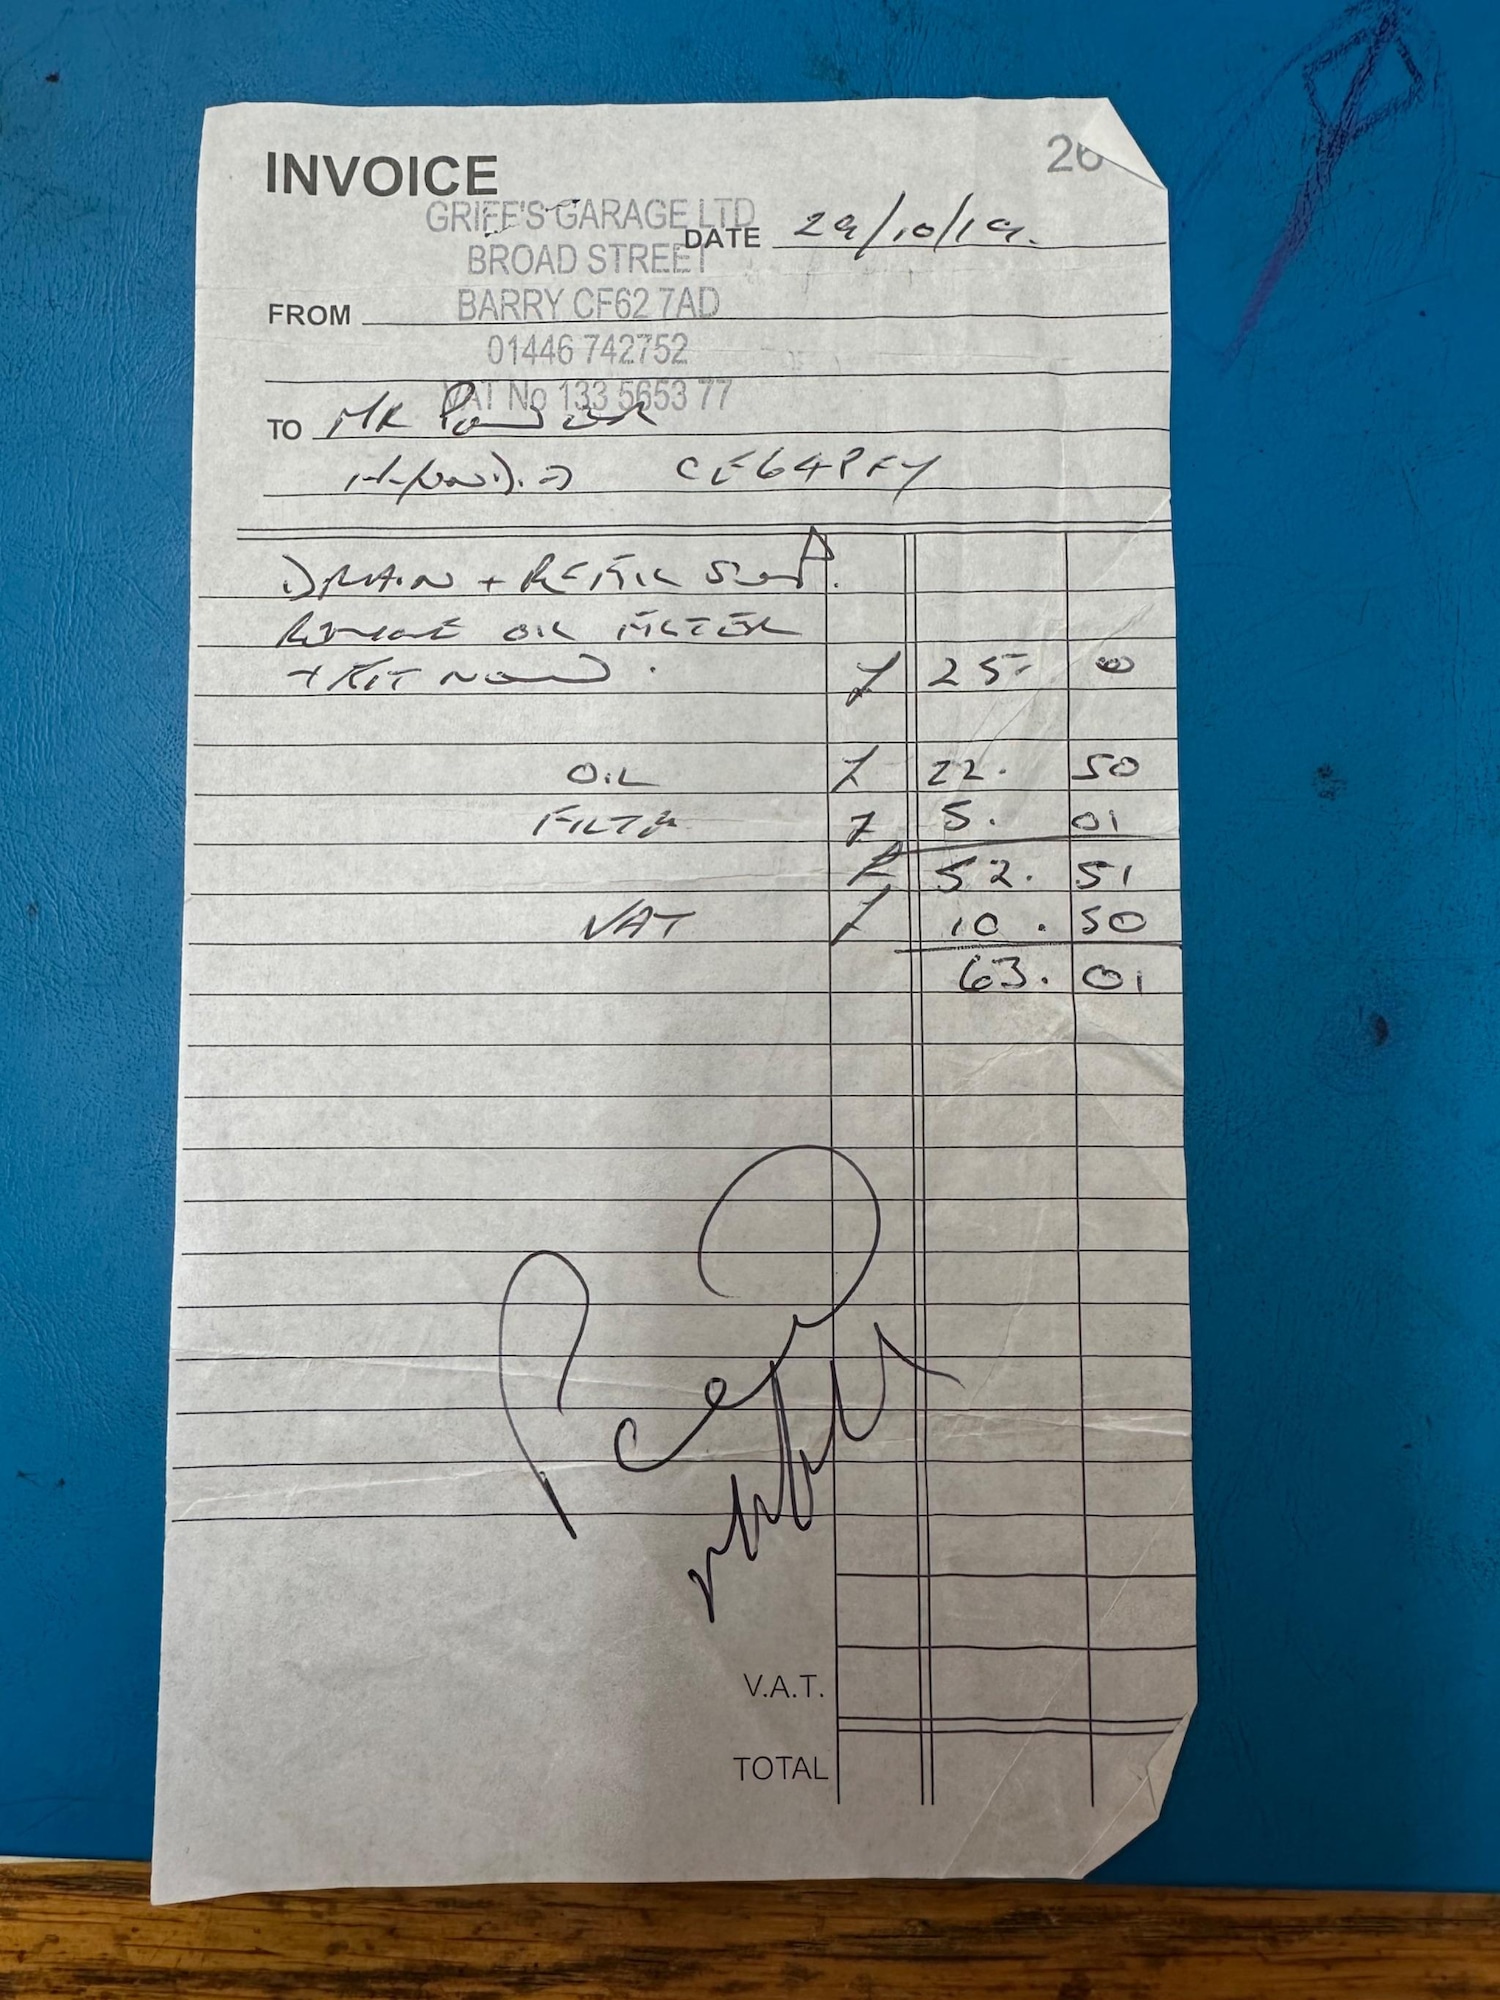 INVOICE 26
GRIFF'S GARAGE LTD
DATE 29/10/19.
BROAD STREET
FROM BARRY CF62 7AD
01446 742752
VAT No 133 5653 77
TO MR
CF64PFY
DRAIN + REFILL SUMP.
REMOVE OIL FILTER
+ FIT NEW. £ 25- 00
OIL £ 22. 50
FILTER £ 5. 01
£ 52. 51
VAT £ 10. 50
63. 01
V.A.T.
TOTAL